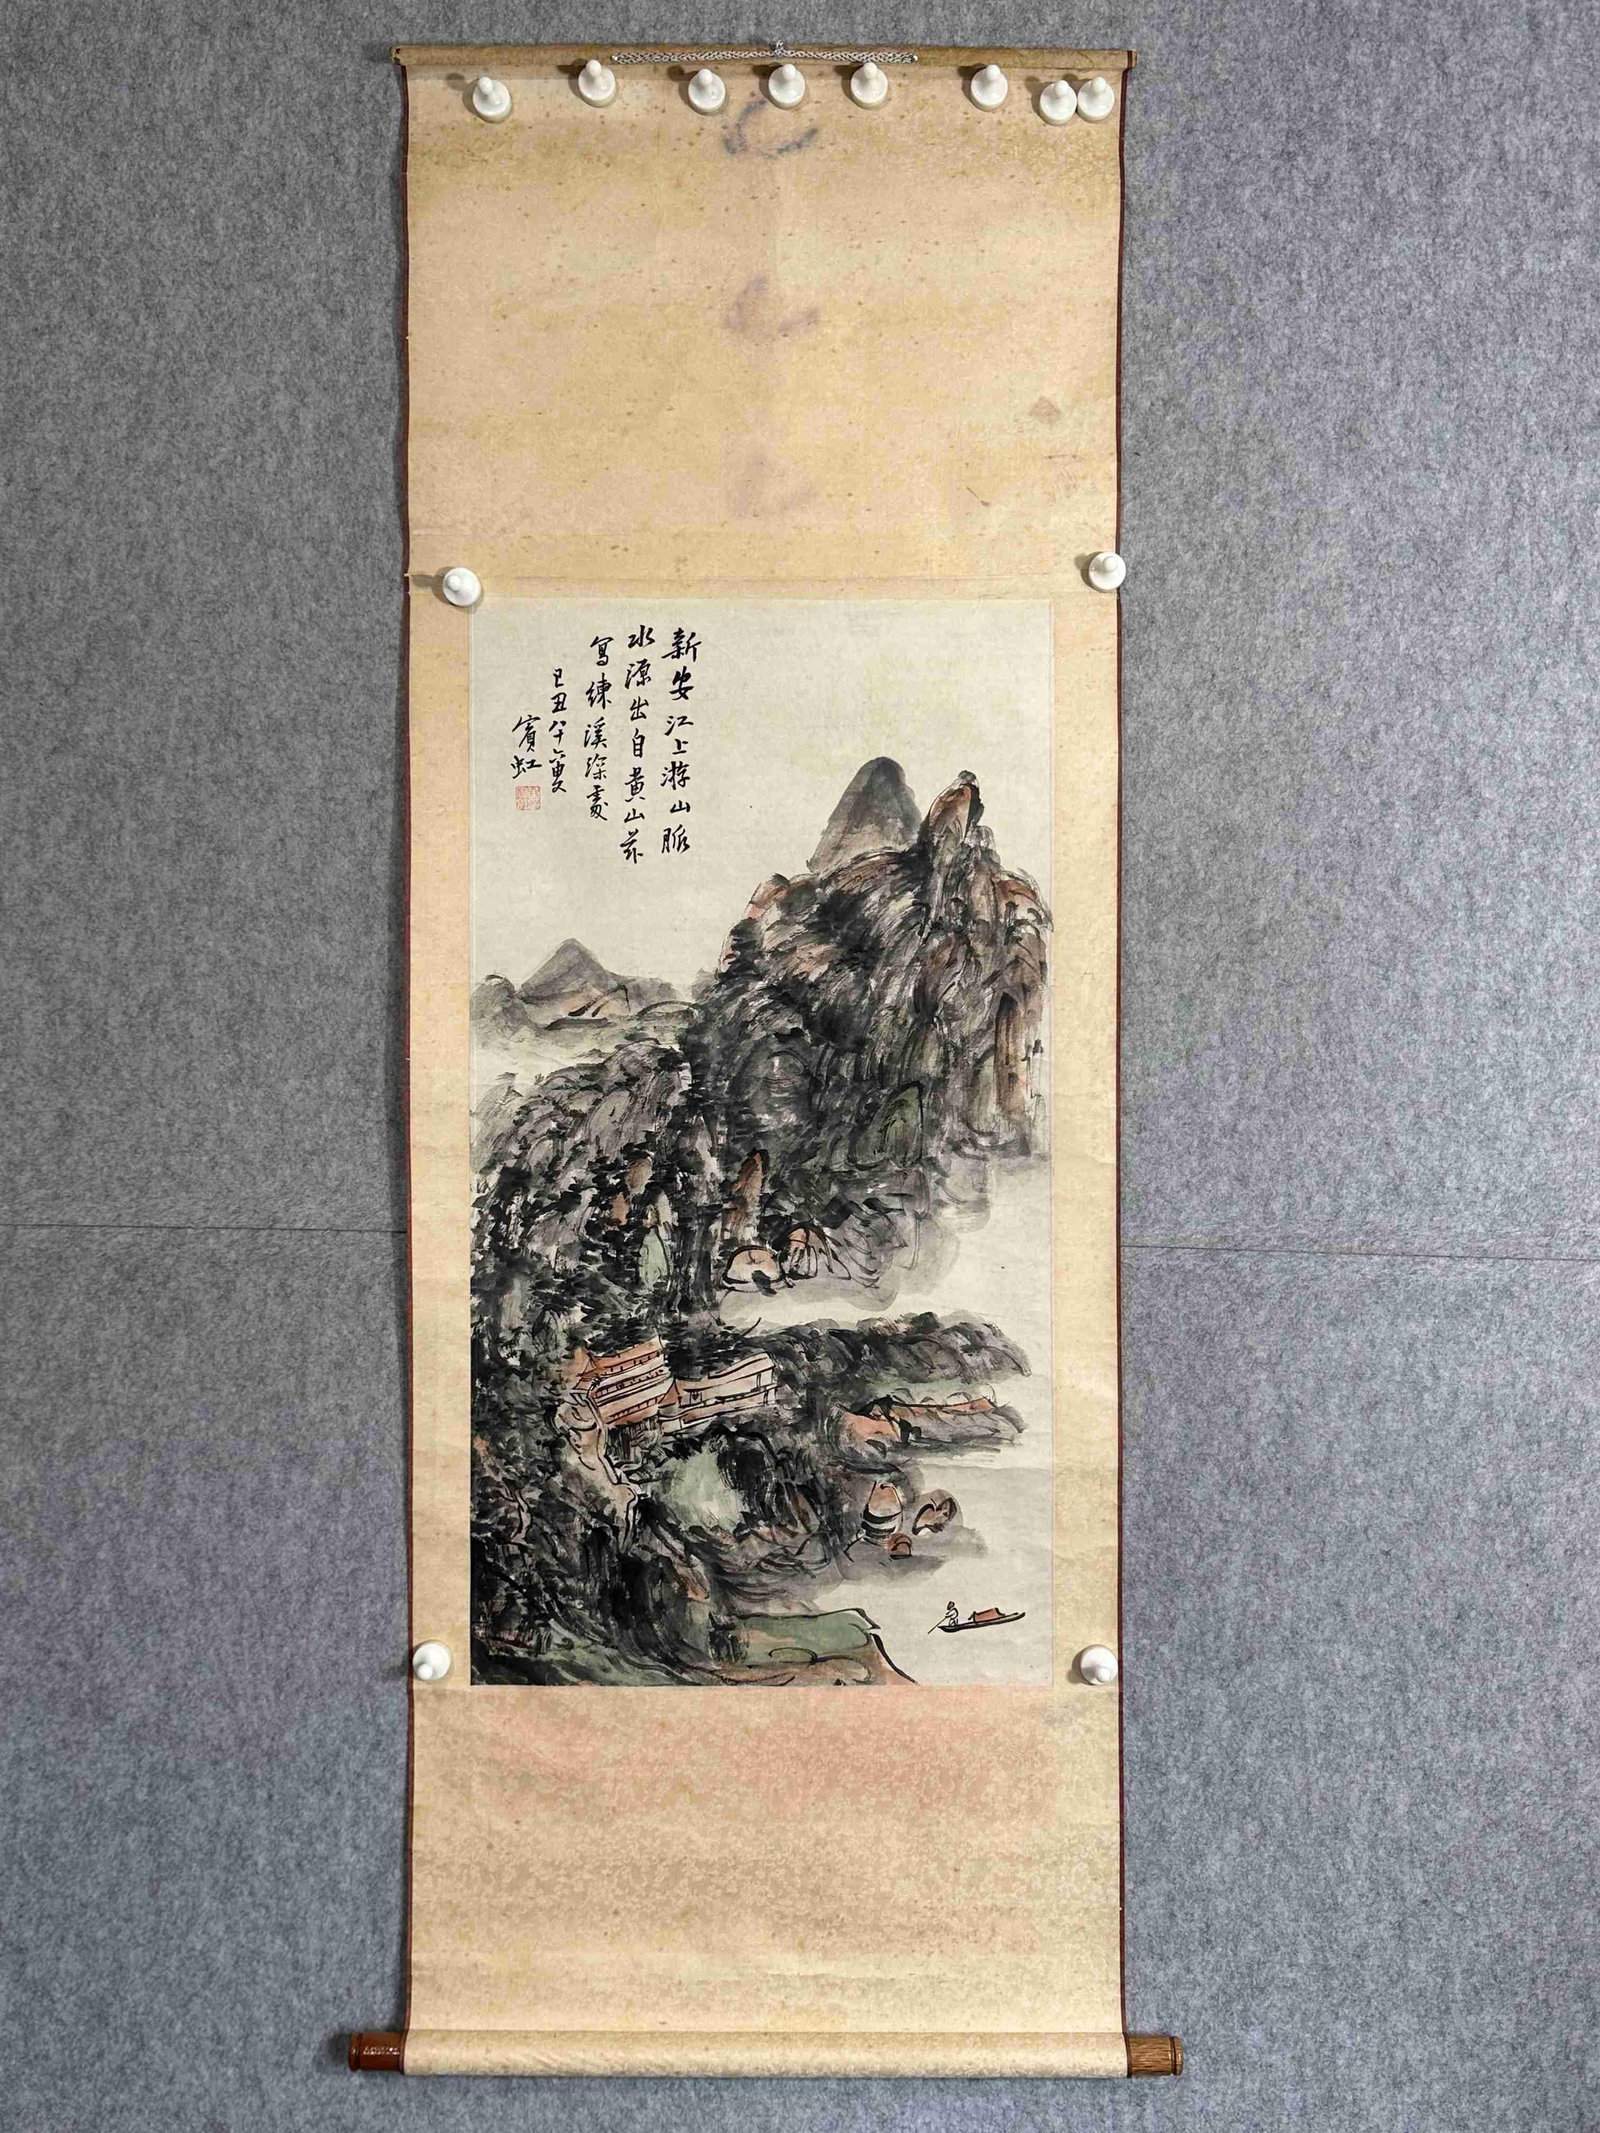 新安江上游山脈
水源出自黄山茲
寫練溪深處
己丑八十六叟
賓虹